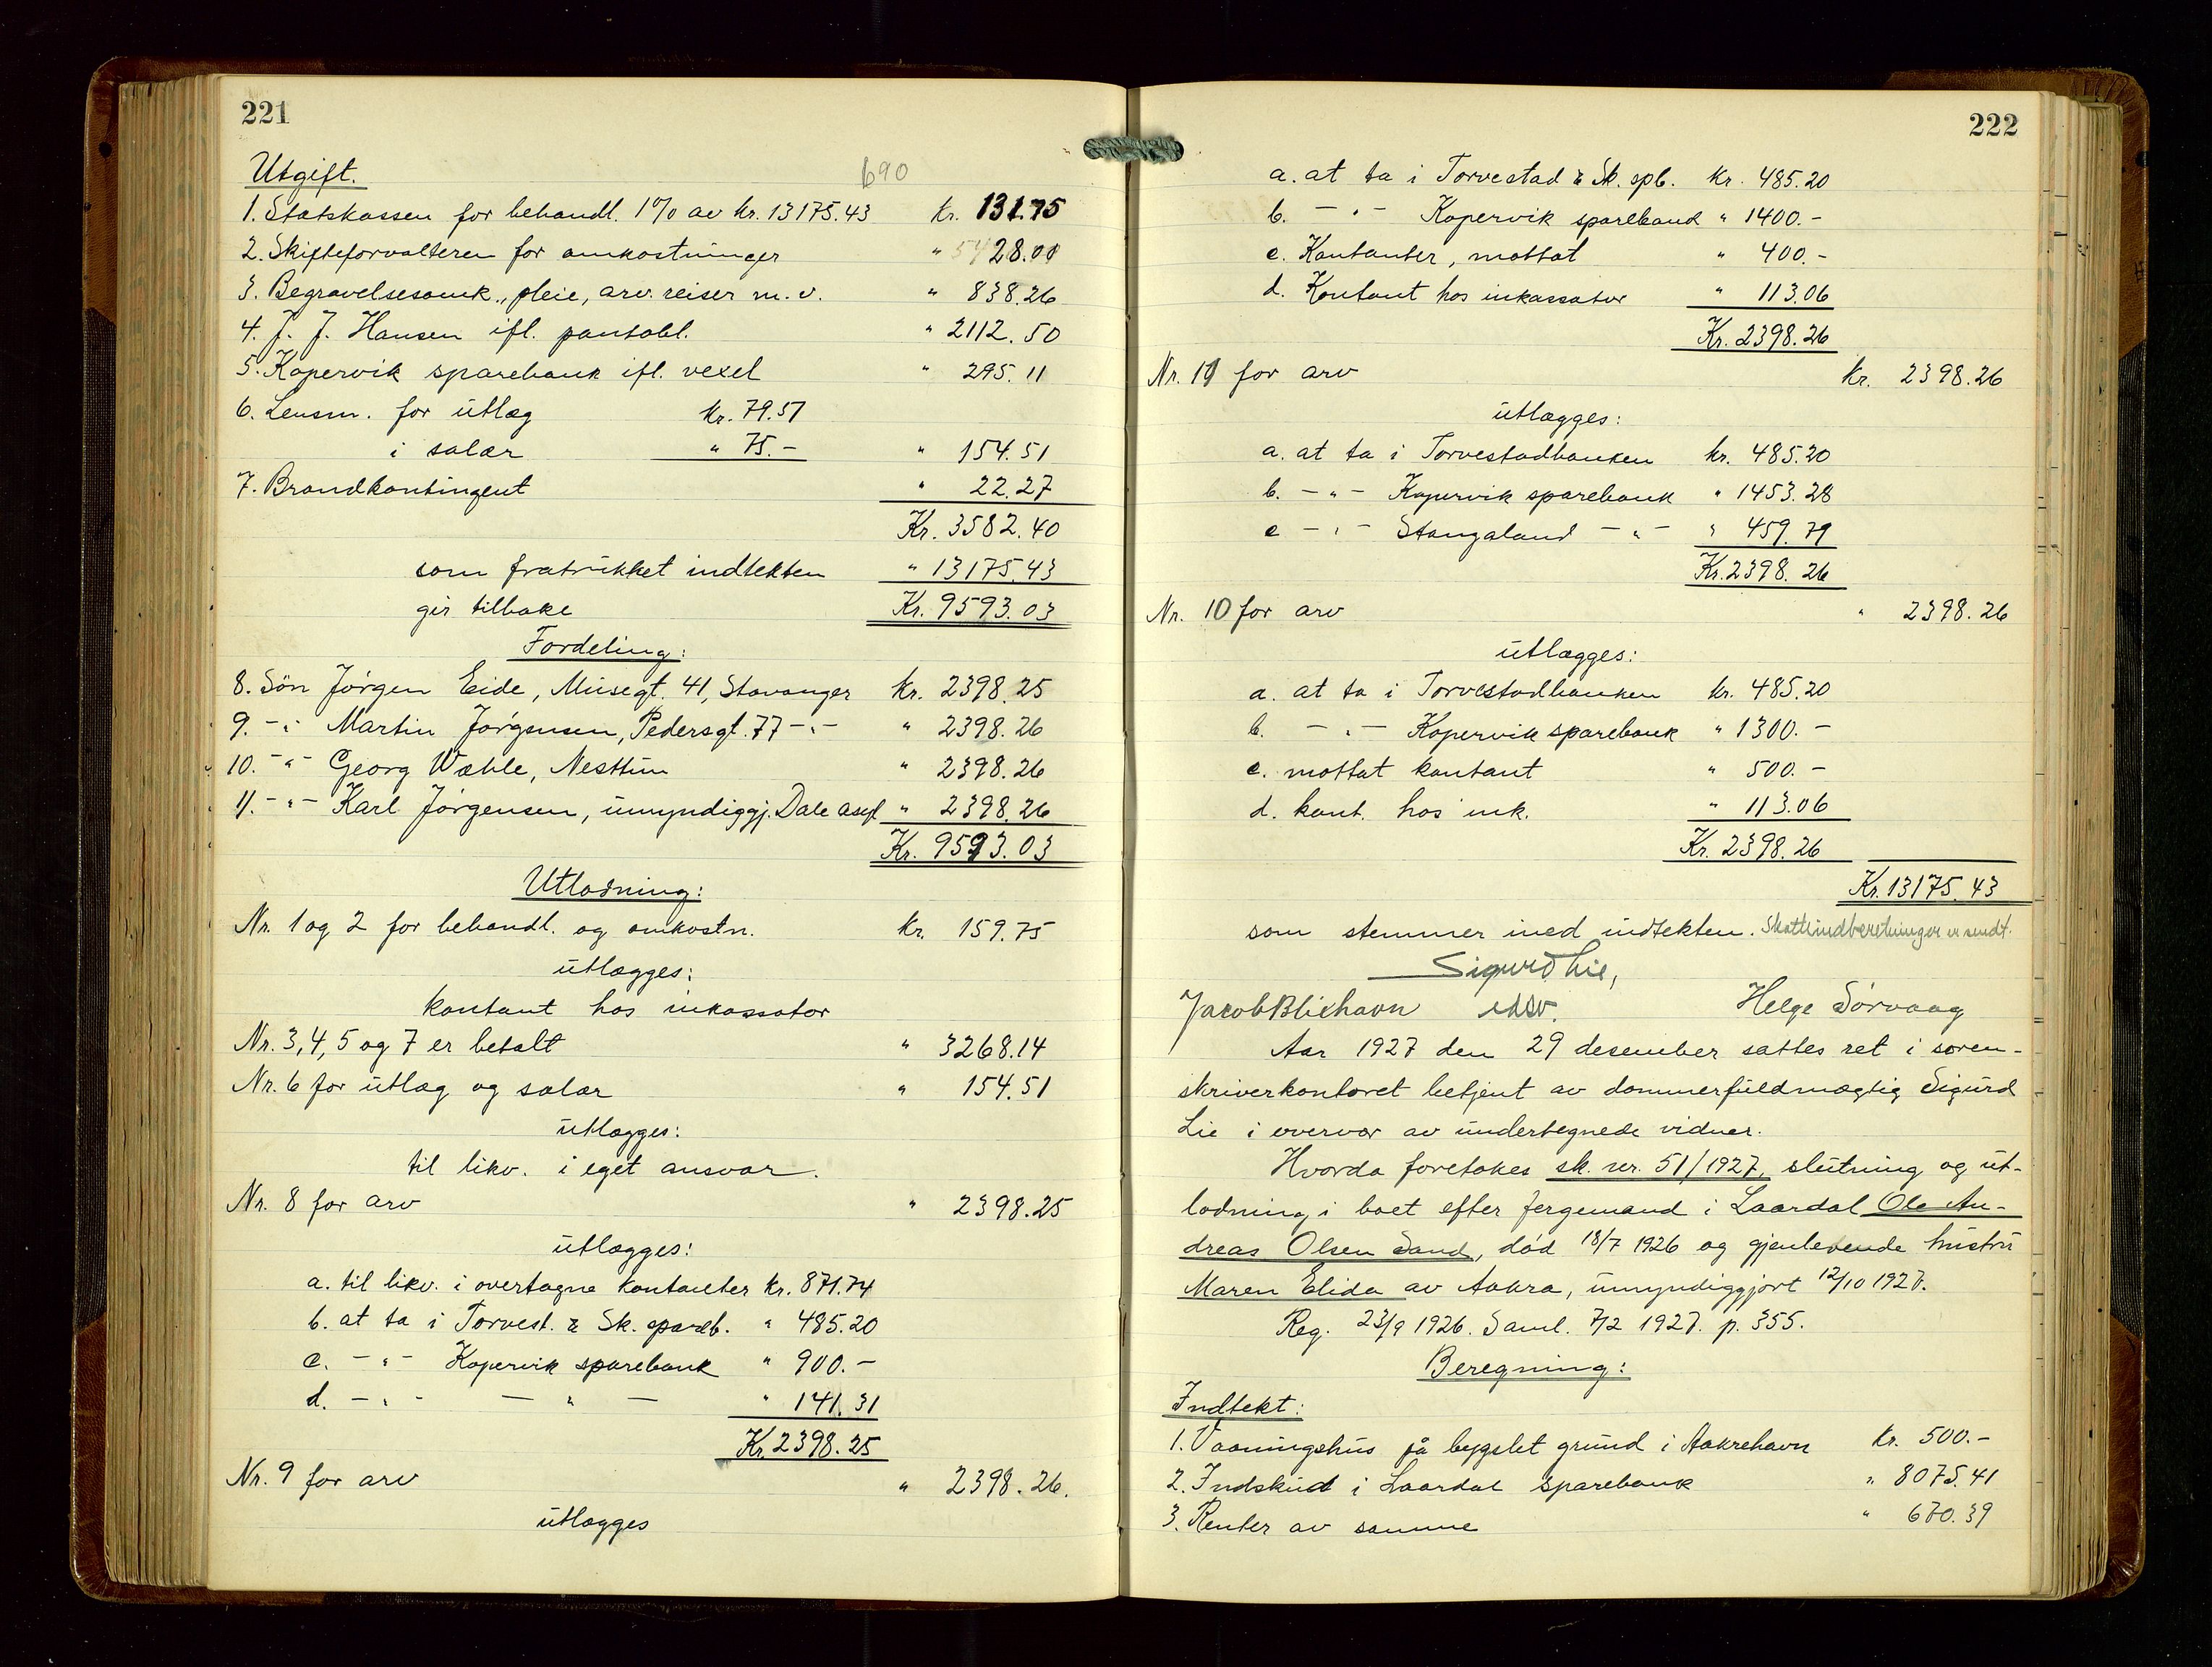 221
Utgift.
690
1. Statskassen for behandl. 1% av kr. 13175.43 kr. 131.75
2. Skifteforvalteren for omkostninger " 28.00
3. Begravelsesomk., pleie, arv. reiser m. v. " 838.26
4. J. J. Hansen ifl. pantobl. " 2112.50
5. Kopervik sparebank ifl. vexel " 295.11
6. Lensm. for utlæg kr. 79.51
i salær " 75.- " 154.51
7. Brandkontingent " 22.27
Kr. 3582.40
som fratrukket indtekten " 13175.43
gir tilbake Kr. 9593.03
Fordeling:
8. Søn Jørgen Eide, Musegt. 41, Stavanger kr. 2398.25
9. -"- Martin Jørgensen, Pedersgt. 77 -"- " 2398.26
10. -"- Georg Wæhle, Nesttun " 2398.26
11. -"- Karl Jørgensen, umyndiggj. Dale asyl " 2398.26
Kr. 9593.03
Utlodning:
Nr. 1 og 2 for behandl. og omkostn. kr. 159.75
utlægges:
kontant hos inkassator
Nr. 3, 4, 5 og 7 er betalt " 3268.14
Nr. 6 for utlæg og salær " 154.51
utlægges:
til likv. i eget ansvar.
Nr. 8 for arv " 2398.25
utlægges:
a. til likv. i overtagne kontanter kr. 871.74
b. at ta i Torvest. & Sk. spareb. " 485.20
c. -"- Kopervik sparebank " 900.-
d. -"- - " - " 141.31
Kr. 2398.25
Nr. 9 for arv " 2398.26.
utlægges
222
a. at ta i Torvestad & Sk. spb. kr. 485.20
b. -"- Kopervik sparebank " 1400.-
c. Kontanter, mottat " 400.-
d. Kontant hos inkassator " 113.06
Kr. 2398.26
Nr. 11 for arv kr. 2398.26
utlægges:
a. at ta i Torvestadbanken kr. 485.20
b. -"- Kopervik sparebank " 1453.28
c -"- Stangaland -"- " 459.79
Kr. 2398.26
Nr. 10 for arv " 2398.26
utlægges:
a. at ta i Torvestadbanken kr. 485.20
b. -"- Kopervik sparebank " 1300.-
c. mottat kontant " 500.-
d. kont. hos ink. " 113.06
Kr. 2398.26
Kr. 13175.43
som stemmer med indtekten. Skatteindberetninger er sendt.
Sigurd Lie,
Jacob Blixhavn Helge Sørvaag
Aar 1927 den 29 desember sattes ret i soren-
skriverkontoret betjent av dommerfuldmægtig Sigurd
Lie i overvær av undertegnede vidner.
Hvorda foretokes sk. nr. 51/1927, slutning og ut-
lodning i boet efter fergemand i Laardal Ole An-
dreas Olsen Sand, død 18/7 1926 og gjenlevende hustru
Maren Elida av Aakra, umyndiggjort 12/10 1927.
Reg. 23/9 1926. Saml. 7/2 1927. p. 355.
Beregning:
Indtekt:
1. Vaaningshus på bygslet grund i Aakrehavn kr. 500.-
2. Indskud i Laardal sparebank " 8075.41
3. Renter av samme " 670.39